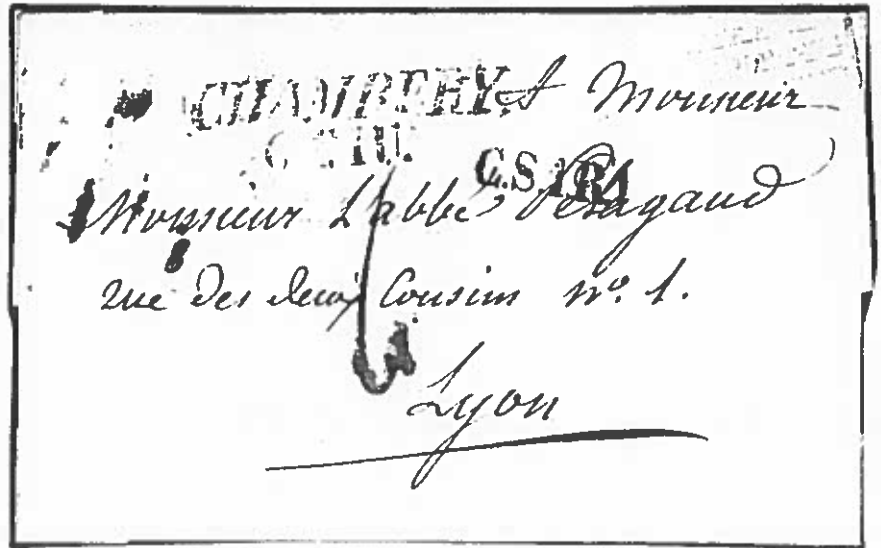 CHAMBERY. A Monsieur
C.S.
Monsieur L'abbé Péragaud
rue des deux Cousins nº. 1.
Lyon